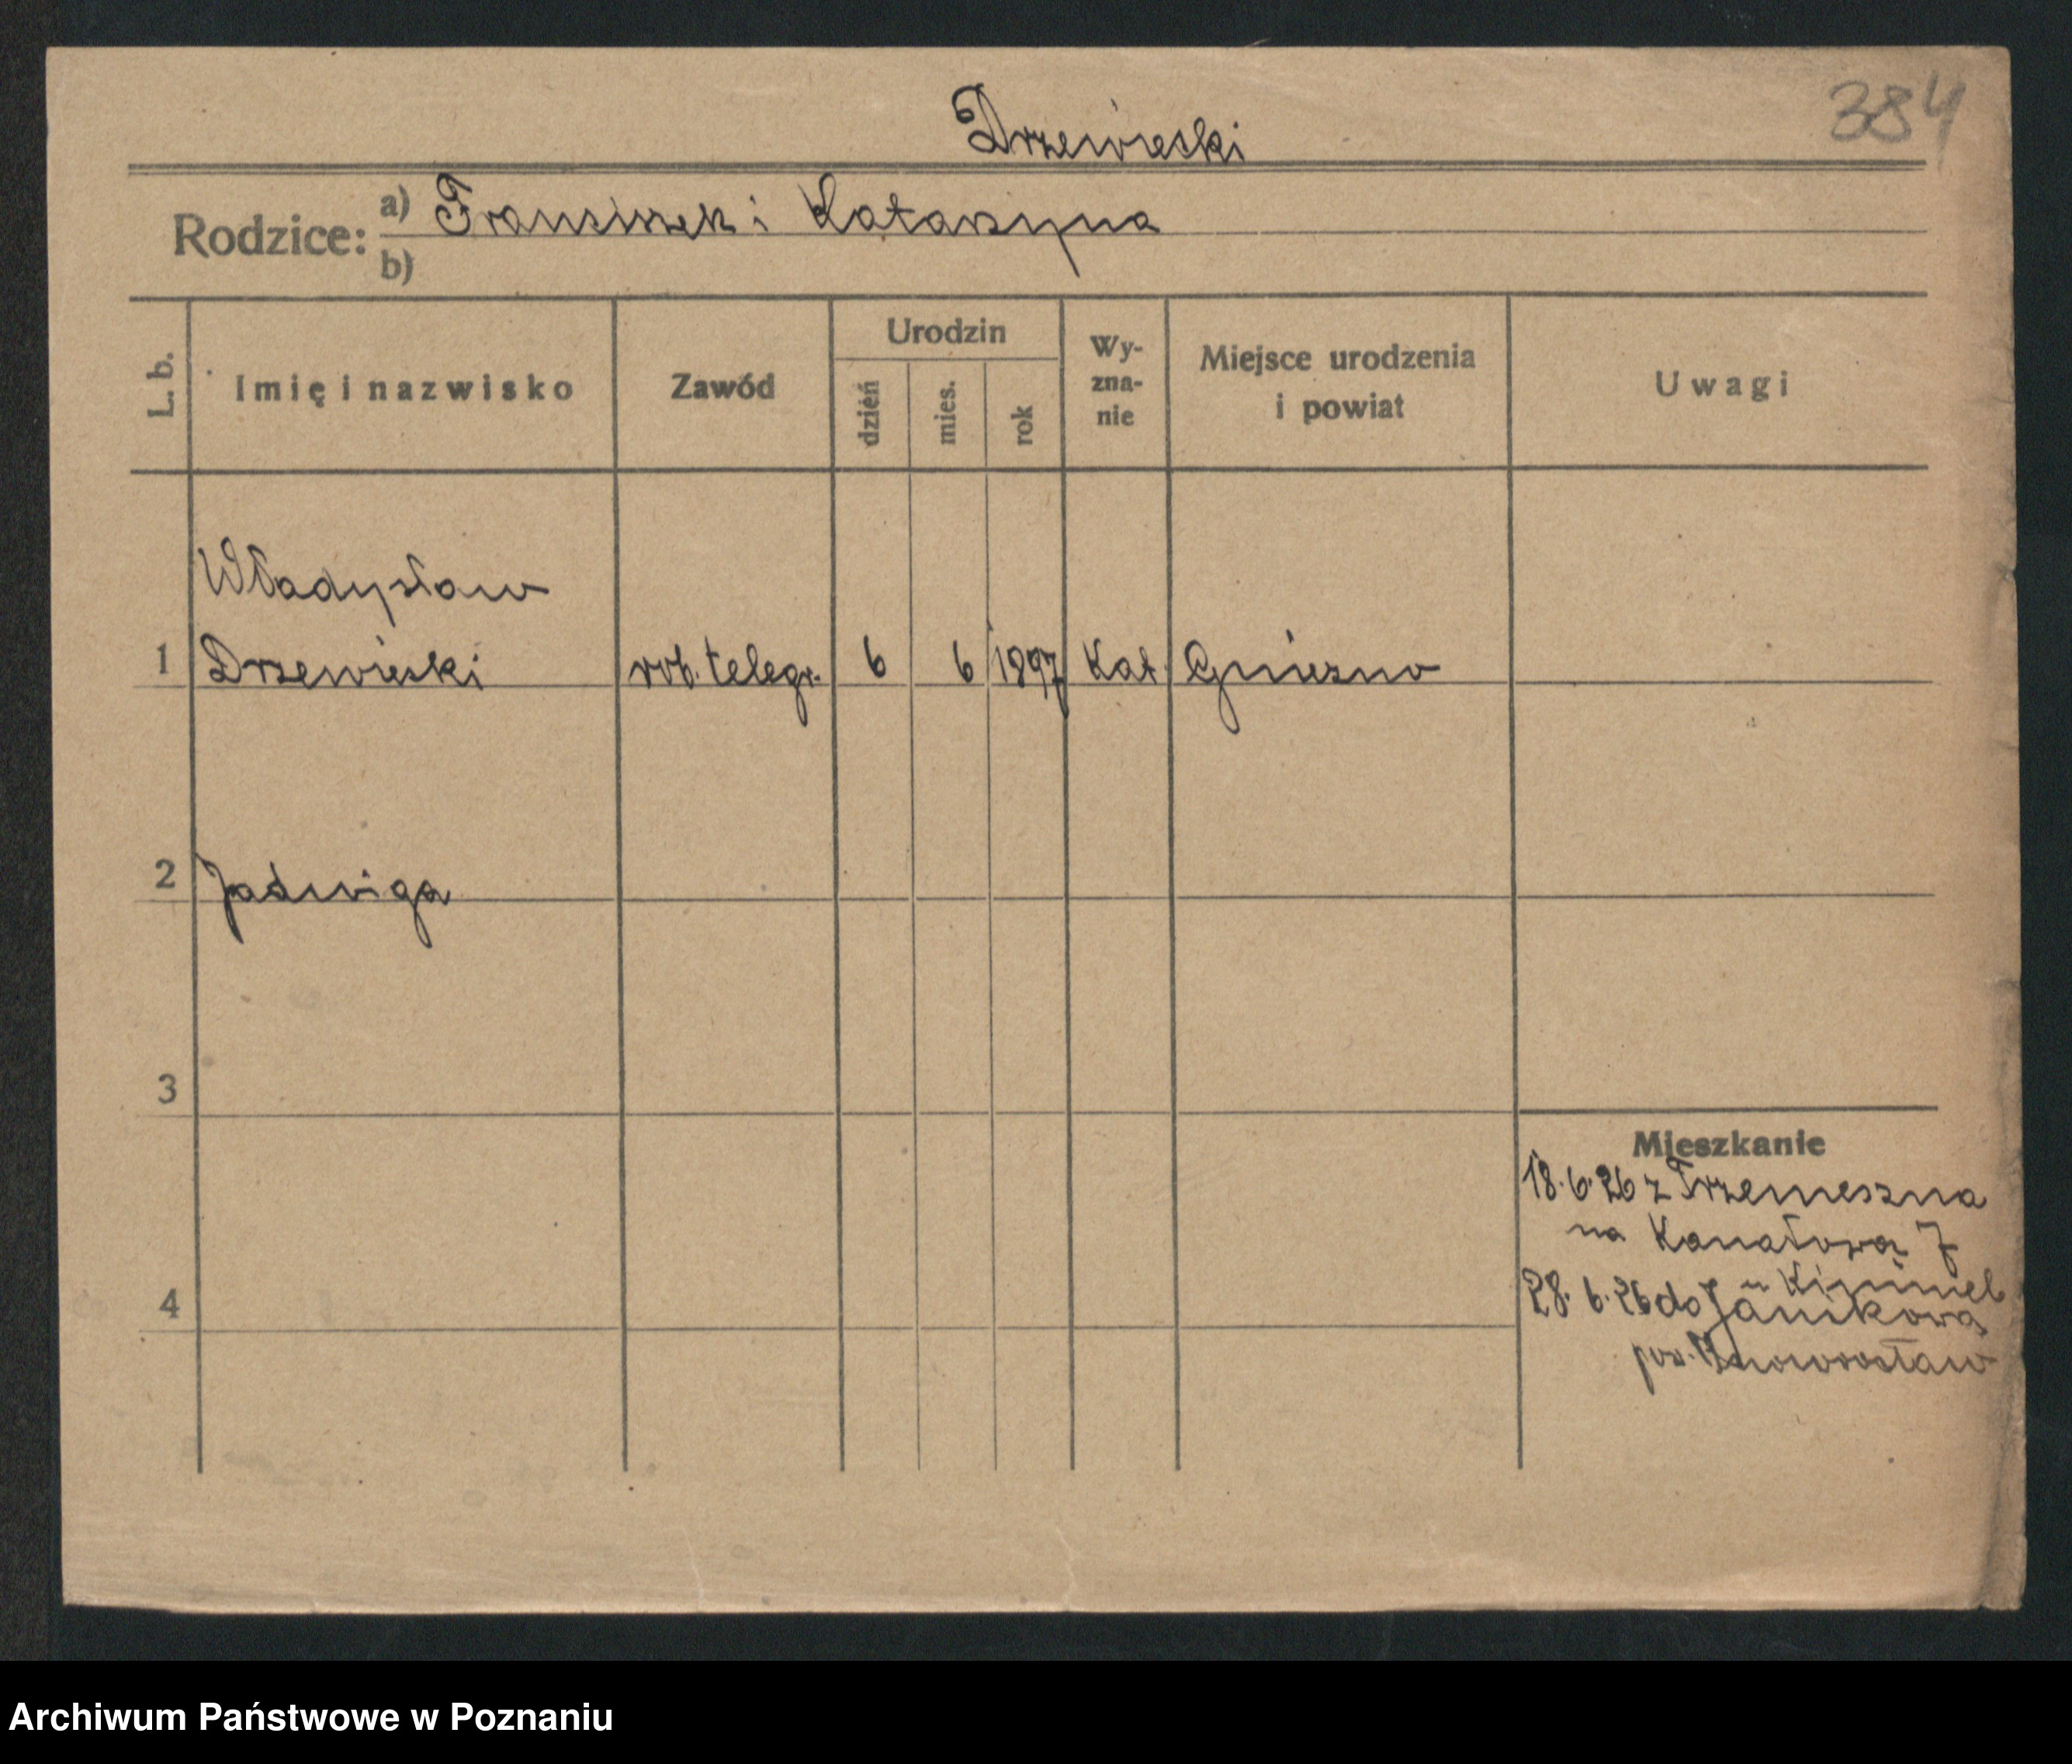 384
Drzewiecki
Rodzice:
a) Franciszek i Katarzyna
b)
L. b.
Imię i nazwisko
Zawód
Urodzin
dzień
mies.
rok
Wy-
zna-
nie
Miejsce urodzenia
i powiat
Uwagi
Władysław
1 Drzewiecki rob. telegr. 6 6 1897 Kat. Gniezno
2 Jadwiga
3
Mieszkanie
18.6.26 z Trzemeszna
na Kanałową 7
u
4
28.6.26 do Janikowa
pow. Inowrocław
Archiwum Państwowe w Poznaniu